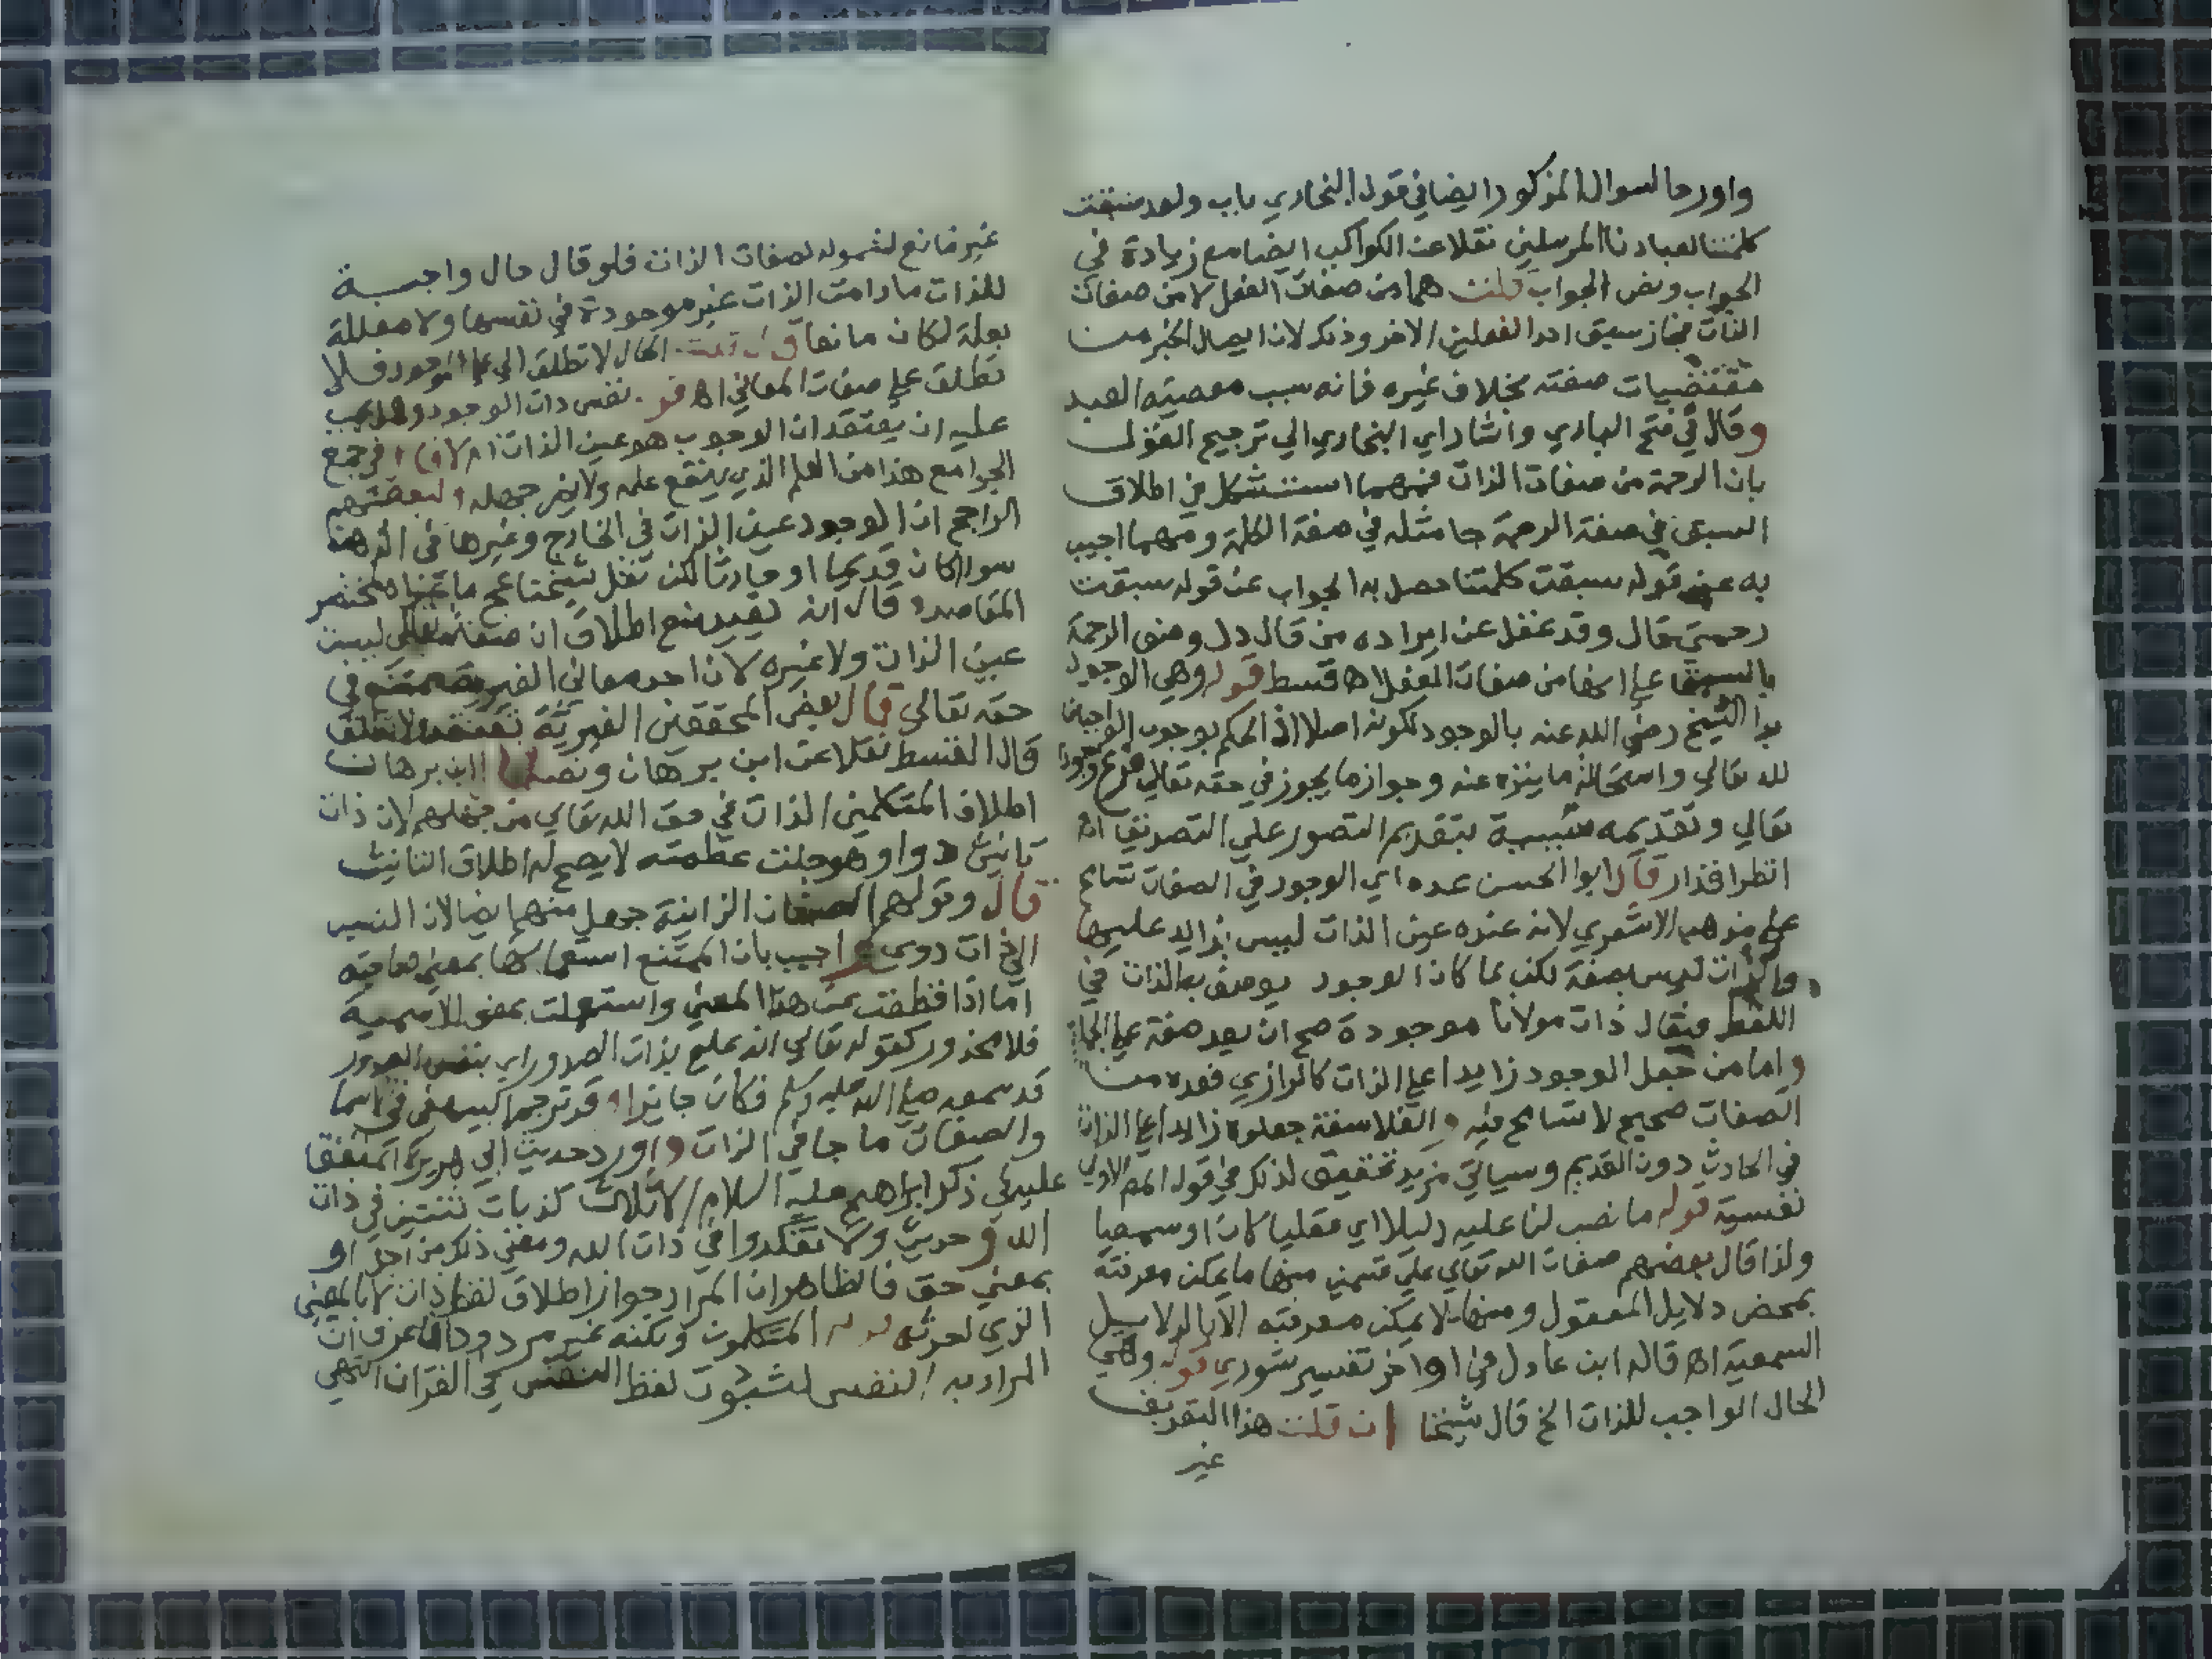 واورد السوال المذكور ايضا في قول البخاري باب ولقد سبقت
كلمتنا لعبادنا المرسلين نقلا عن الكواكب ايضا مع زيادة في
الجواب ونص الجواب قلت هما من صفات الفعل لا من صفات
الذات فجاز سبق احد الفعلين الاخر وذلك لان ايصال الخير من
مقتضيات صفته بخلاف غيره فانه سبب معصية العبد
وقال في فتح الباري واشار اي البخاري الي ترجيح القول
بان الرحمة من صفات الذات فمهما استشكل في اطلاق
السبق في صفة الرحمة جا مثله في صفة الكلمة ومهما اجيب
به عن قوله سبقت كلمتنا حصل به الجواب عن قوله سبقت
رحمتي قال وقد غفل عن مراده من قال دل وصف الرحمة
بالسبق علي انها من صفات الفعل اه قسط قوله وهي الوجود
بدا الشيخ رضي الله عنه بالوجود لكونه اصلا اذ الحكم بوجوب الواجبات
لله تعالي واستحالة ما ينزه عنه وجواز ما يجوز في حقه تعالي فرع وجوده
تعالي وتقديمه شبيه بتقديم التصور علي التصديق اه
انظر اقدار قال ابوا الحسن عده اي الوجود في الصفات تسامح
علي مذهب الاشعري لانه عنده عين الذات ليس بزايد عليها
والذات ليس بصفة لكن لما كان الوجود يوصف به الذات في
اللفظ فيقال ذات مولانا موجودة صح ان يعد صفة علي الجملة
واما من جعل الوجود زايدا علي الذات كالرازي فعده من
الصفات صحيح لا تسامح فيه والفلاسفة جعلوه زايدا علي الذات
في الحادث دون القديم وسياتي مزيد تحقيق لذلك في قوله المص الاولي
نفسية قوله ما نصب لنا عليه دليلا اي عقليا كان او سمعيا
ولذا قال بعضهم صفات الله تعالي علي قسمين منها ما يمكن معرفته
بمحض دلايل المعقول ومنها لا يمكن معرفته الا بالدلايل
السمعية اه قاله ابن عادل في اواخر تفسير شوري قوله وهي
الحال الواجب للذات الخ قال شيخنا ان قلت هذا التعريف
غير
غير مانع لشموله لصفات الذات فلو قال حال واجبة
للذات ما دامت الذات غير موجودة في نفسها ولا معللة
بعلة لكان مانعا قلت الحال لا تطلق الي علي الموجود فلا
تطلق علي صفات المعاني اه قو نفس ذات الوجود
عليه ان يعتقد ان الوجوب هو عين الذات ام لا في جمع
الجوامع هذا من العلم الذي ينفع علمه ولا يضر جهله ولبعضهم
الراجح ان الوجود عين الذات في الخارج وغيرها في الذهن
سوا كان قديما او حادثا لكن نقل شيخنا عج ما مختصر
المقاصد قال انه يفيد منع اطلاق ان صفاته تعالي ليست
عين الذات ولا غيره لان احد معاني الغير ممتنع في
حقه تعالي قال بعض المحققين الغيرية
قال القسط نقلا عن ابن برهان ونصه ابن برهان
اطلاق المتكلمين الذات في حق الله تعالي من جهلهم لان ذات
تانيث ذو وهو جلت عظمته لا يصح له اطلاق التانيث
قال وقولهم الصفات الذاتية جهل منهم ايضا لان النسب
الي ذات دوي واجيب بان الممتنع استعمالها بمعني صاحبه
اما اذا قطعت عن هذا المعني واستعملت بمعني الاسمية
فلا محذور كقوله تعالي انه عليم بذات الصدور اي بنفس الصدور
قد سمعه صلي الله عليه وسلم فكان جايزا وقد ترجم البيهقي في الاسما
والصفات ما جا في الذات واورد حديث ابي هريرة المتفق
عليه في ذكر ابراهيم عليه السلام الا ثلاث كذبات ثنتين في ذات
الله وحديث ولا تفكروا في ذات الله ومعني ذلك من اجل او
بمعني حق فالظاهر ان المراد جواز اطلاق لفظ ذات لا بالمعني
الذي احدثه المتكلمون ولكنه غير مردود اذا عرف ان
المراد به النفس لثبوت لفظ النفس في القران انتهي